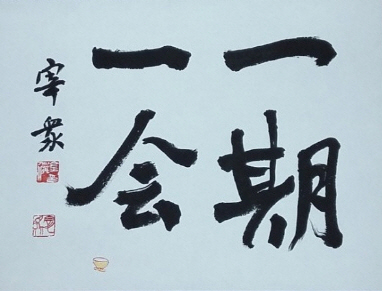 一期
一会
宰衆